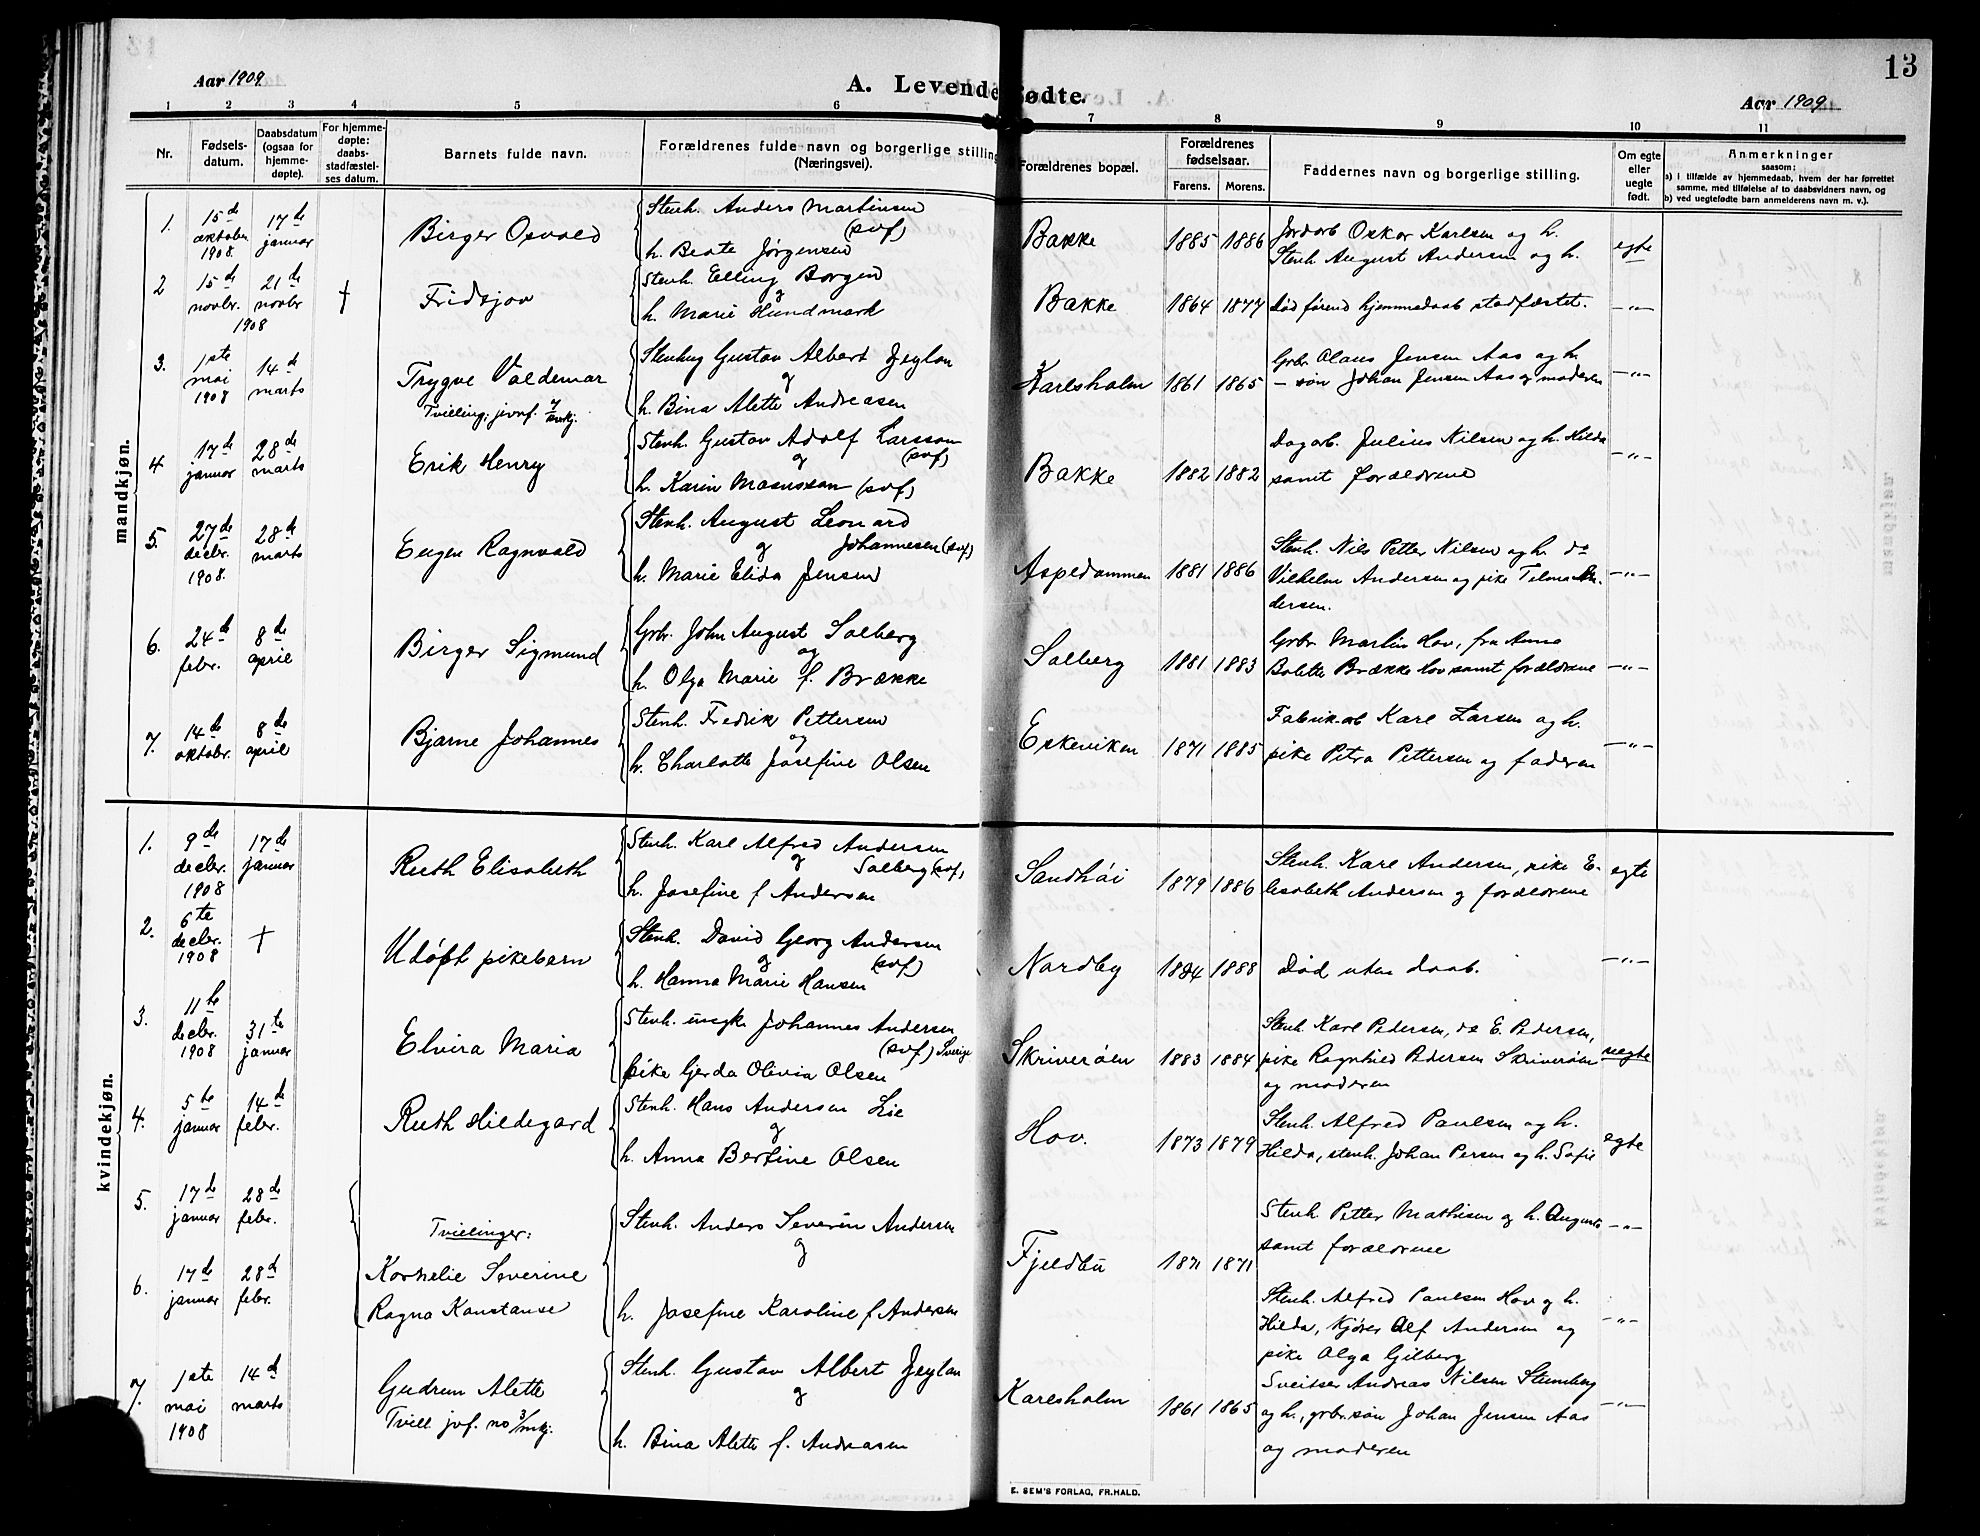 13
Aar 1909
A. Levendefødte.
Aar 1909
1 2 3 4 5 6 7 8 9 10 11
Nr.
Fødsels-
datum.
Daabsdatum
(ogsaa for
hjemme-
døpte).
For hjemme-
døpte:
daabs-
stadfæstel-
ses datum.
Barnets fulde navn.
Forældrenes fulde navn og borgerlige stilling
(Næringsvei).
Forældrenes bopæl.
Forældrenes
fødselsaar.
Farens. Morens.
Faddernes navn og borgerlige stilling.
Om egte
eller
uegte
født.
Anmerkninger
saasom:
a) i tilfælde av hjemmedaab, hvem der har forrettet
samme, med tilføielse af to daabsvidners navn, og
b) ved uegtefødte barn anmelderens navn m. v.).
mandkjøn.
1.
15de
oktober
1908.
17de
januar
Birger Osvald
Stenh. Anders Martinsen
(svf)
h. Beate Jørgensen
Bakke
1885 1886
Jordarb Oskar Karlsen og h.
Stenh. August Andersen og h.
egte
2
15de
novbr.
21de
novbr
1908
†
Fridtjov
Stenh. Elling Borgen
og
h. Marie Hundmark
Bakke
1864 1877
Død førend hjemmedaab stadfæstet.
—"—
3.
1ste
mai
1908
14de
marts
Trygve Valdemar
Tvilling; jvnf. 7/kvkj.
Stenhug Gustav Albert Jeylan
og
h. Bina Alette Andreasen
Karlsholm
1861 1865
Grbr. Olaus Jensen Aas og h.
— søn Johan Jensen Aas og moderen
—"—
4
17de
januar
28de
marts
Erik Henry
Stenh. Gustav Adolf Larsson
og (svf)
h. Karin Magnusson (svf)
Bakke
1882 1882
Dagarb. Julius Nilsen og h. Hilda
samt forældrene
—"—
5.
27de
decbr.
1908.
28de
marts
Eugen Ragnvald
Stenh. August Leonard
og Johannesen (svf)
h. Marie Elida Jensen
Aspedammen
1881 1886
Stenh. Nils Petter Nilsen og h. do
Vilhelm Andersen og pike Telma An-
dersen.
—"—
6.
24de
febr.
8de
april
Birger Sigmund
Grbr. John August Solberg
og
h. Olga Marie f. Brække
Solberg
1881 1883
Grbr Martin Hov, fru Anna
Bolette Brække Hov samt forældrene
—"—
7.
14de
oktobr.
8de
april
Bjarne Johannes
Stenh. Fredrik Pettersen
og
h. Charlotte Josefine Olsen
Eskeviken
1871 1885
Fabrik.arb Karl Larsen og h.
pike Petra Pettersen og faderen
—"—
kvindekjøn.
1.
9de
decbr.
1908
17de
januar
Ruth Elisabeth
Stenh. Karl Alfred Andersen
og Solberg (svf)
h. Josefine f Andersen
Sandhøi
1879 1886
Stenh. Karl Andersen, pike E-
lisabeth Andersen og forældrene
egte
2.
6te
decbr.
1908
†
Udøpt pikebarn
Stenh. David Georg Andersen
og (svf)
h. Hanna Marie Hansen
Nordby
1884 1888
Død uten daab.
—"—
3.
11te
decbr.
1908
31te
januar
Elvira Maria
Stenh. ungk. Johannes Andersen
(svf) Sverige
pike Gjerda Olivia Olsen
Skriverøen
1883 1884
Stenh. Karl Pedersen, do E. Pedersen,
pike Ragnhild Pedersen Skriverøen
og moderen
uegte
4.
5te
januar
14de
febr.
Ruth Hildegard
Stenh. Hans Andersen Lie
og
h. Anna Bertine Olsen
Hov.
1873 1879
Stenh. Alfred Paulsen og h.
Hilda, stenh. Johan Persen og h. Sofie
egte
5.
17de
januar
28de
febr.
Tvillinger:
Stenh. Anders Severin Andersen
og
Fjeldbu
1871 1871
Stenh. Petter Mathisen og h. Augusta
samt forældrene
—"—
6.
17de
januar
28de
febr.
Kornelie Severine
Ragna Konstanse
h. Josefine Karoline f Andersen
Stenh. Alfred Paulsen Hov og h.
Hilda, Kjører Alf Andersen og
pike Olga Gilberg
—"—
7.
1ste
mai
1908
14de
marts
Gudrun Alette
Tvill. jvf. no 3/mkj.
Stenh. Gustav Albert Jeylan
og
h. Bina Alette f. Andreasen
Karlsholm
1861 1865
Sveitser Andreas Nilsen Stumberg
og h., grbr.søn Johan Jensen Aas
og moderen
—"—
E. SEM'S FORLAG, FR.HALD.